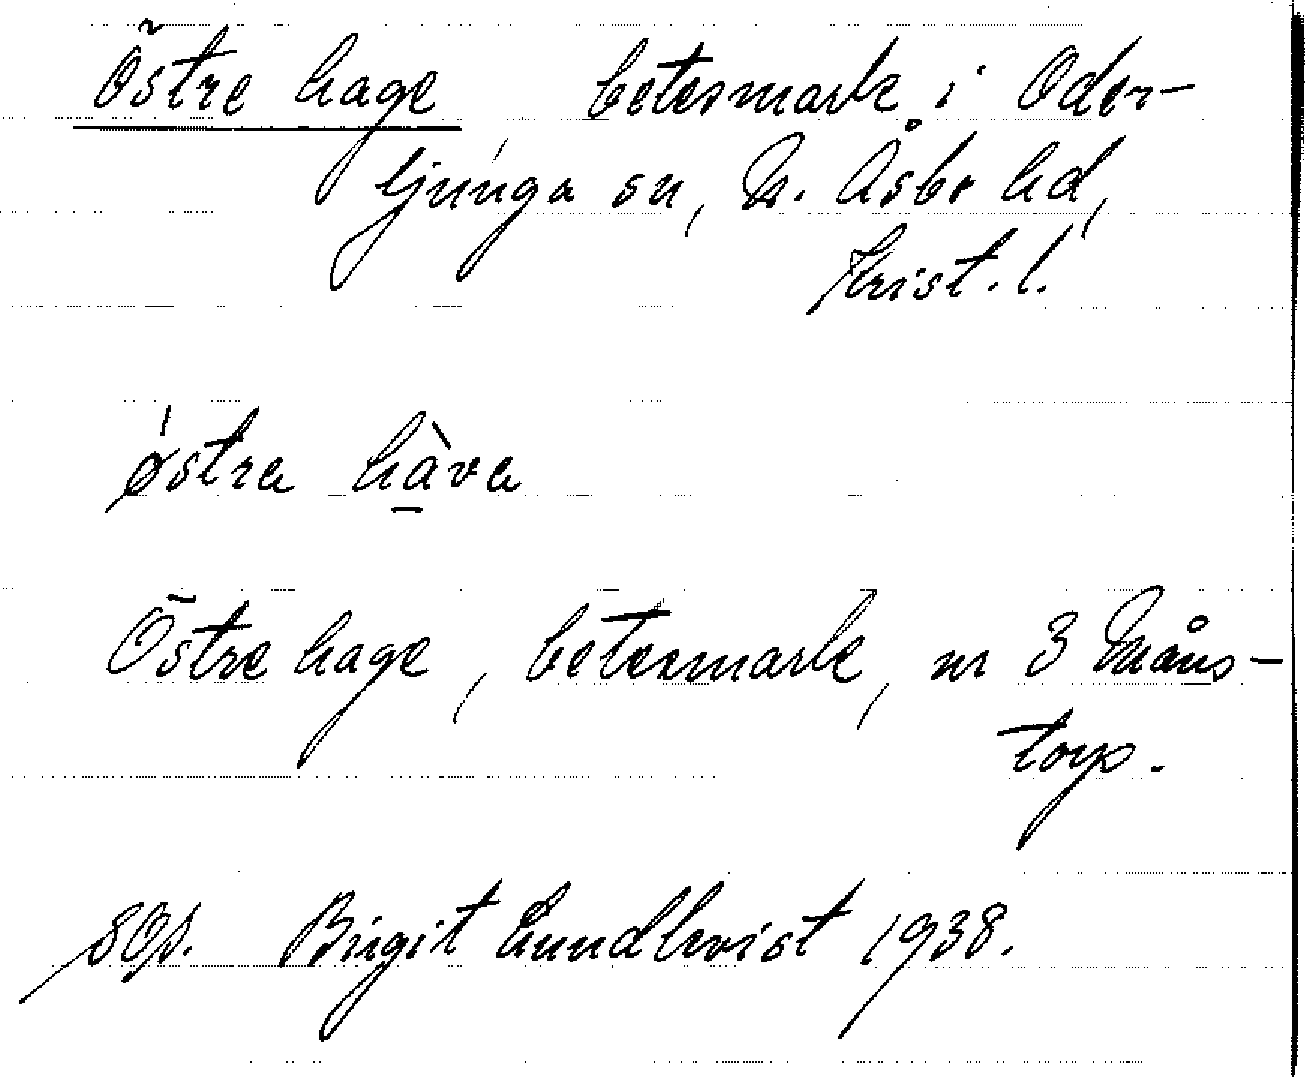 Östre hage betesmark i Oder-
ljunga sn, N. Åsbo hd,
Krist. l.
østra hàva
Östre hage, betesmark, nr 3 Måns-
torp.
SOp. Birgit Lundkvist 1938.